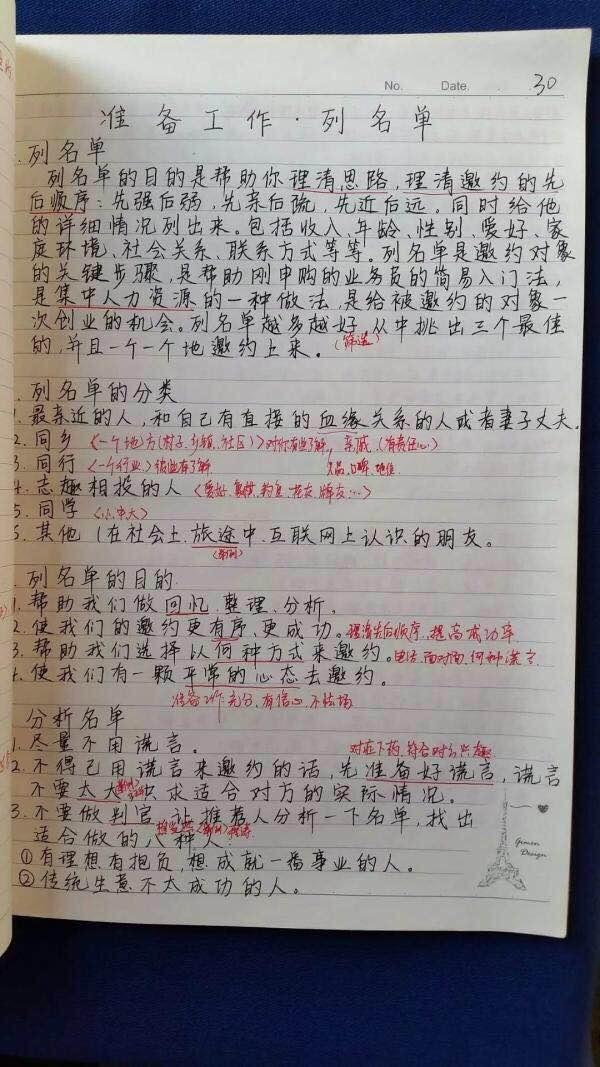 No. Date. 30
准备工作·列名单
列名单
列名单的目的是帮助你理清思路,理清邀约的先
后顺序:先强后弱,先亲后疏,先近后远。同时给他
的详细情况列出来。包括收入、年龄、性别、爱好、家
庭环境、社会关系、联系方式等等。列名单是邀约对象
的关键步骤,是帮助刚申购的业务员的简易入门法,
是集中人力资源的一种做法,是给被邀约的对象一
次创业的机会。列名单越多越好,从中挑出三个最佳
的,并且一个一个地邀约上来。(筛选)
列名单的分类
1. 最亲近的人,和自己有直接的血缘关系的人或者妻子丈夫.
2. 同乡 <一个地方(村子.乡镇.社区)>对你有些了解, 亲戚.(有责任心)
3. 同行 <一个行业.>彼此有了解 人品、口碑、地位
4. 志趣相投的人
5. 同学 <小.中.大>
6. 其他(在社会上.旅途中.互联网上认识的朋友。
(举例)
列名单的目的
1. 帮助我们做回忆.整理.分析.
2. 使我们的邀约更有序.更成功。理清先后顺序.提高成功率
3. 帮助我们选择以何种方式来邀约。电话.面对面.何种谎言
4. 使我们有一颗平常的心态去邀约。
准备工作充分.有信心.不怯场
分析名单
1. 尽量不用谎言。 对症下药.符合对方兴趣
2. 不得已用谎言来邀约的话,先准备好谎言,谎言
不要太大.只求适合对方的实际情况。
3. 不要做判官,让推荐人分析一下名单,找出
适合做的八种人:
①有理想有抱负,想成就一番事业的人。
②传统生意不太成功的人。
Design